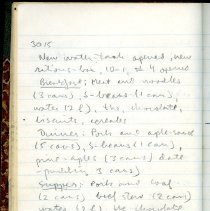 30/5
New water-tank opened, new
rations-box, 10-1, & 4 opened
Breakfast: Meat and noodles
(3 cans), S-beans (1 can),
water (2 l), tea, chocolate,
biscuits, cereales
Dinner: Pork and apple-sauce
(5 cans), S-beans (1 can),
pine-aples (3 cans) date
-pudding 3 cans)
Supper: Pork and loaf
(2 cans) beef stew (2 cans)
water (2 l), tea, chocolate